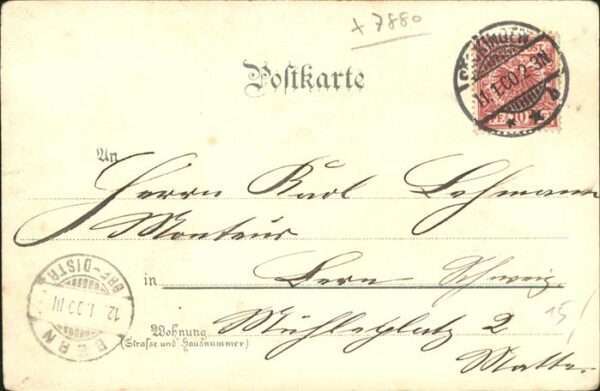 + 7880
Postkarte
11.1.00.2-3N
b
10
An
Herrn Karl Lehmann
Monteur
in
Bern Schweiz
Wohnung
(Strasse und Hausnummer)
Mühleplatz 2
Matte.
15/
BRF-DISTR.
12.1.00
BERN